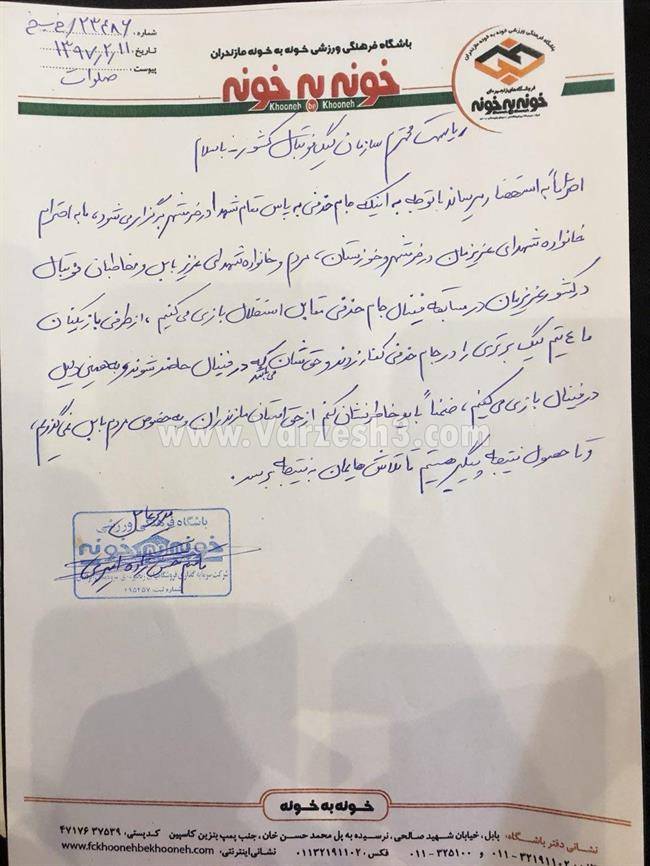 باشگاه فرهنگی ورزشی خونه به خونه مازندران
خونه به خونه
Khooneh be Khooneh
باشگاه فرهنگی ورزشی خونه به خونه مازندران
خونه به خونه
شماره: ۲۳۴۸۶/خ
تاریخ: ۱۳۹۷/۲/۱۱
پیوست: صلوات
ریاست محترم سازمان لیگ فوتبال کشور - با سلام
احتراماً به استحضار میرساند با توجه به اینکه جام حذفی به پاس مقام شهدا در خرمشهر برگزار می شود، ما به احترام
خانواده شهدای عزیزمان در خرمشهر و خوزستان، مردم و خانواده شهدای عزیز بابل و مخاطبان فوتبال
در کشور عزیزمان در مسابقه فینال جام حذفی مقابل استقلال بازی می کنیم، از طرفی بازیکنان
ما ۴ تیم لیگ برتری را در جام حذفی کنار زدند و حقشان می باشد که در فینال حاضر شوند و به همین دلیل
در فینال بازی می کنیم، ضمناً باید خاطرنشان کنم از حق استان مازندران و به خصوص مردم بابل نمی گذریم،
و تا حصول نتیجه پیگیر هستیم تا تلاش هایمان به نتیجه برسد.
www.Varzesh3.com
باشگاه فرهنگی ورزشی
مدیرعامل
خونه به خونه
شماره ثبت: ۱۹۵۲۵۷
خونه به خونه
نشانی دفتر باشگاه: بابل، خیابان شهید صالحی، نرسیده به پل محمد حسن خان، جنب پمپ بنزین کاسپین کدپستی: ۳۷۵۳۹ ۴۷۱۷۶
۰۱۱-۳۲۱۹۱۱۰۲ و ۳۲۵۱۰۰-۰۱۱ فکس: ۰۱۱۳۲۱۹۱۱۰۲۰ نشانی اینترنتی: www.fckhoonehbekhooneh.com